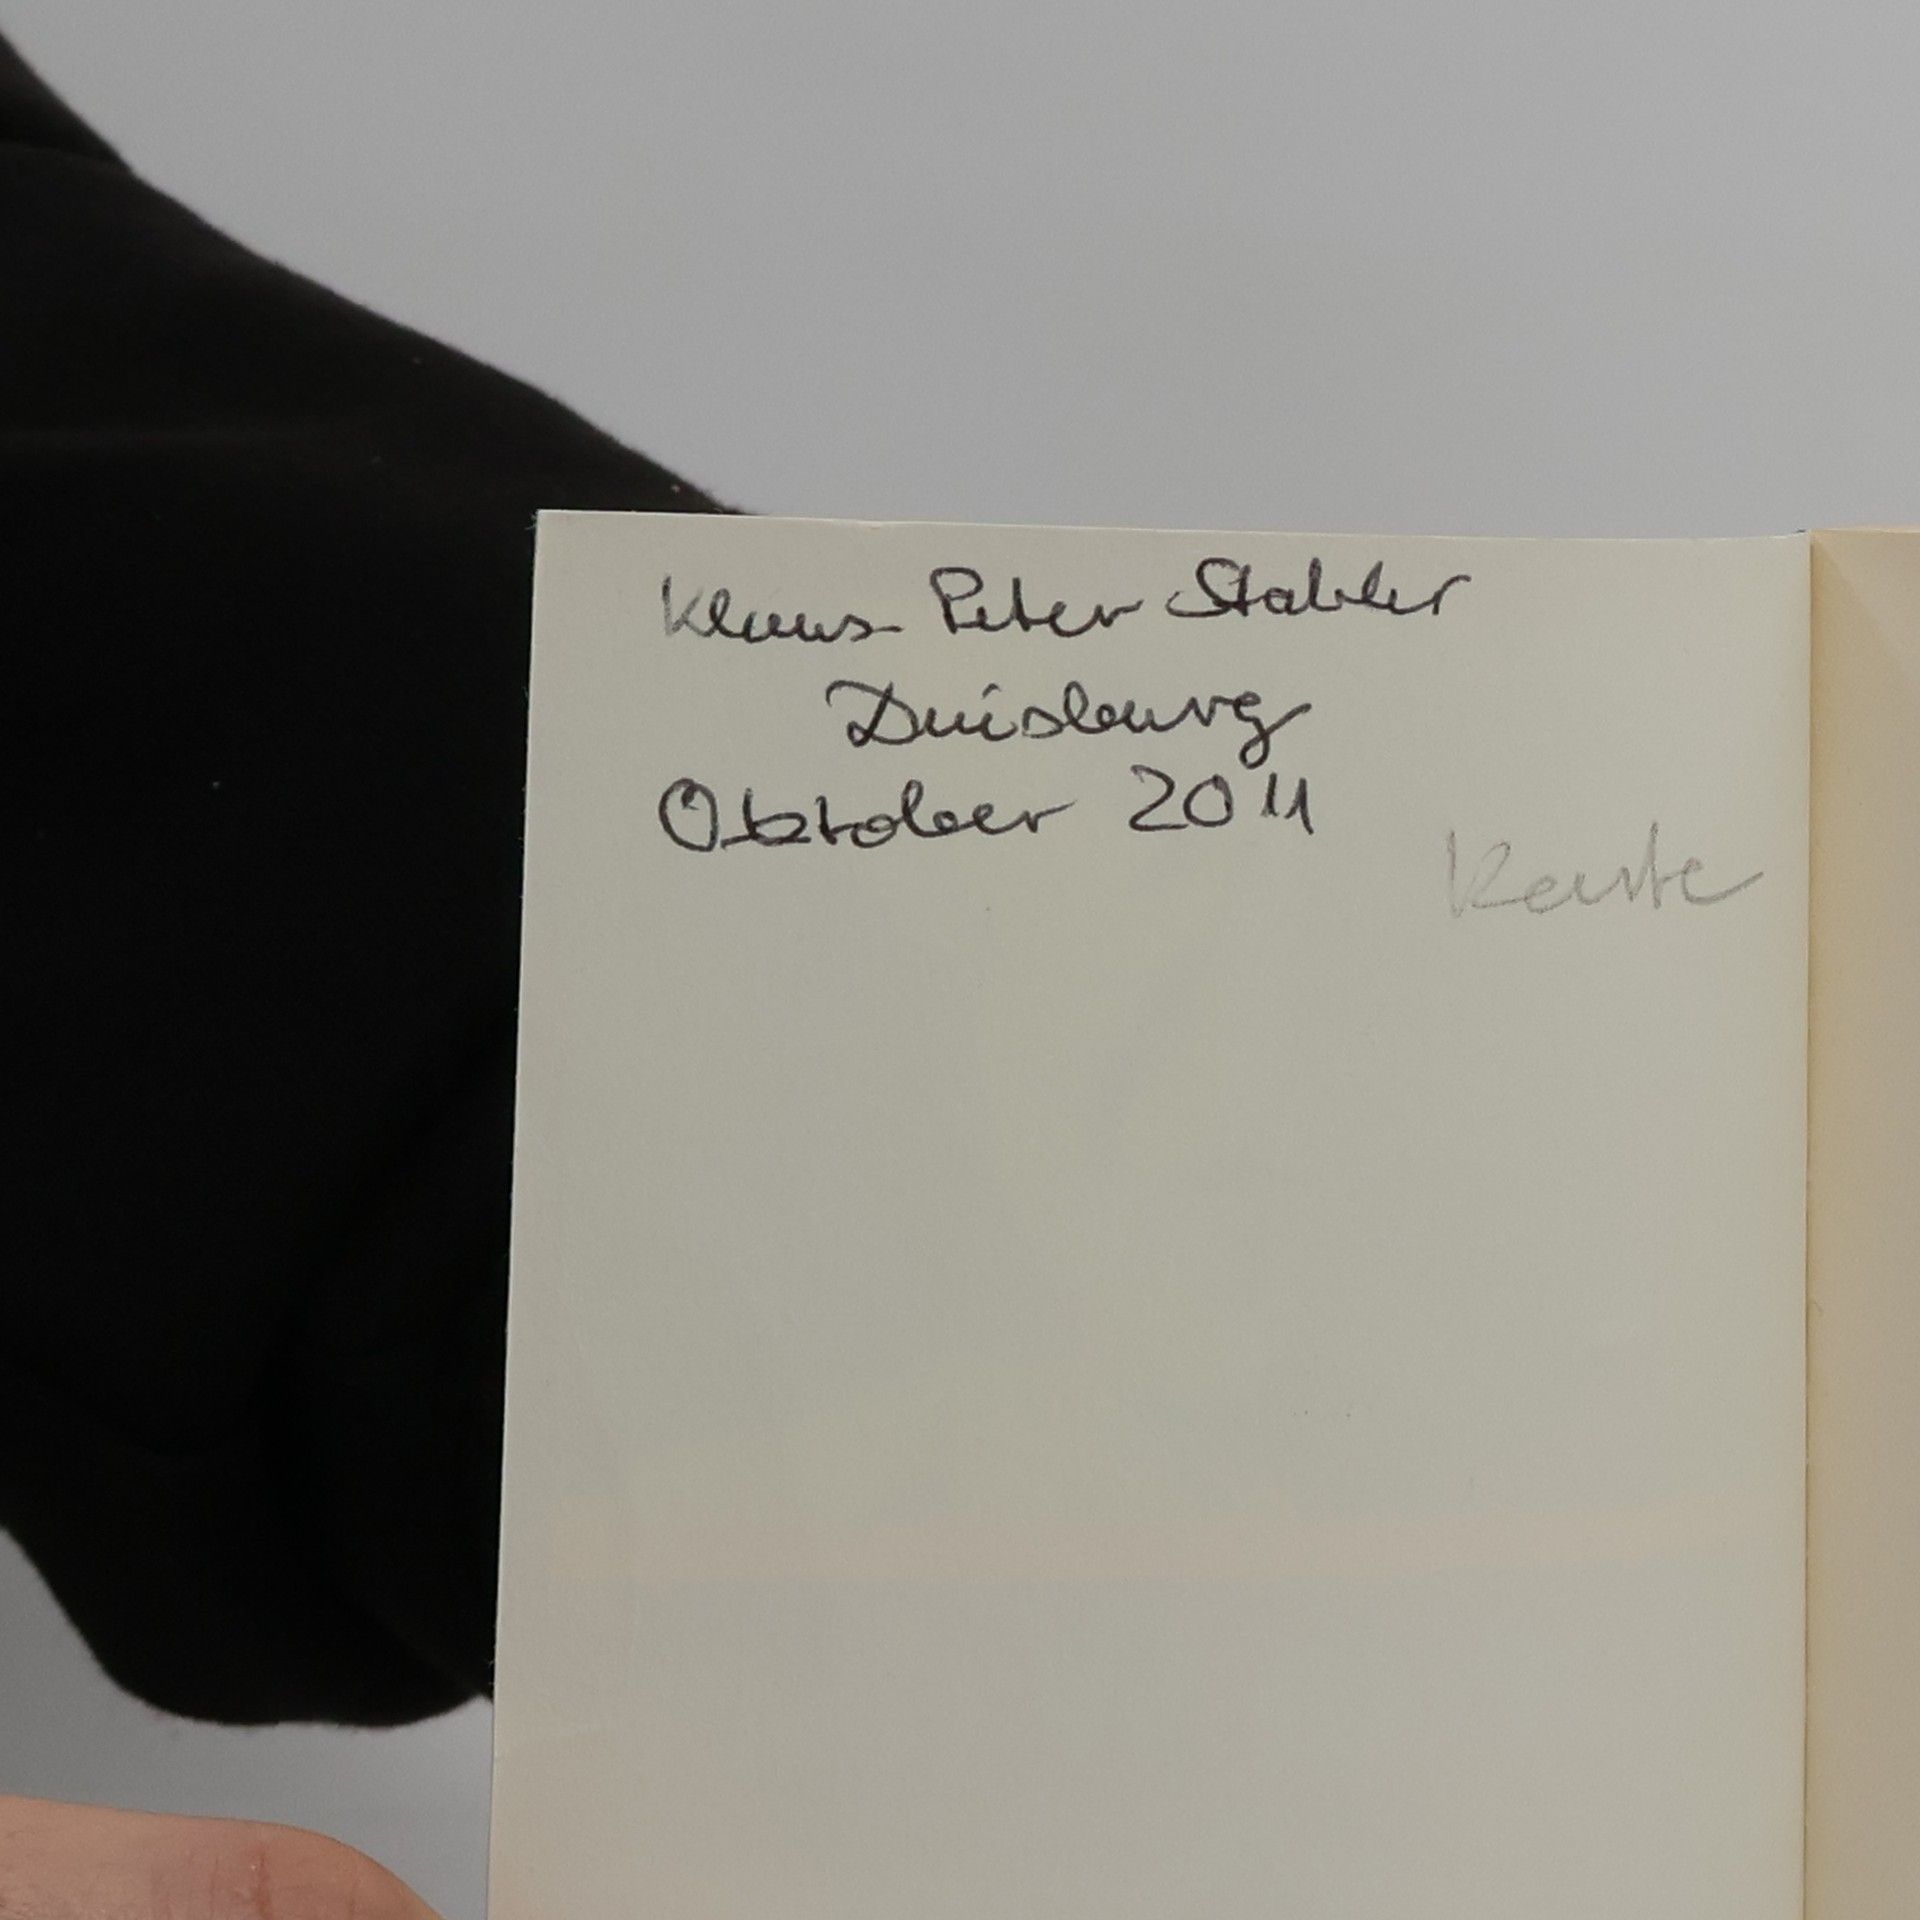 Klaus-Peter Stabler
Duisburg
Oktober 2011
Karte